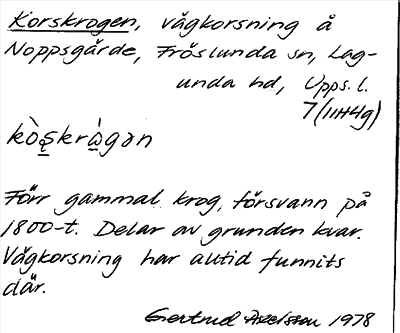 Korskrogen, vägkorsning å
Noppsgärde, Fröslunda sn, Lag-
unda hd, Upps. l.
7(11H4g)
kò̀ʂkrὼgən
Förr gammal krog, försvann på
1800-t. Delar av grunden kvar.
Vägkorsning har alltid funnits
där.
Gertrud Axelsson 1978